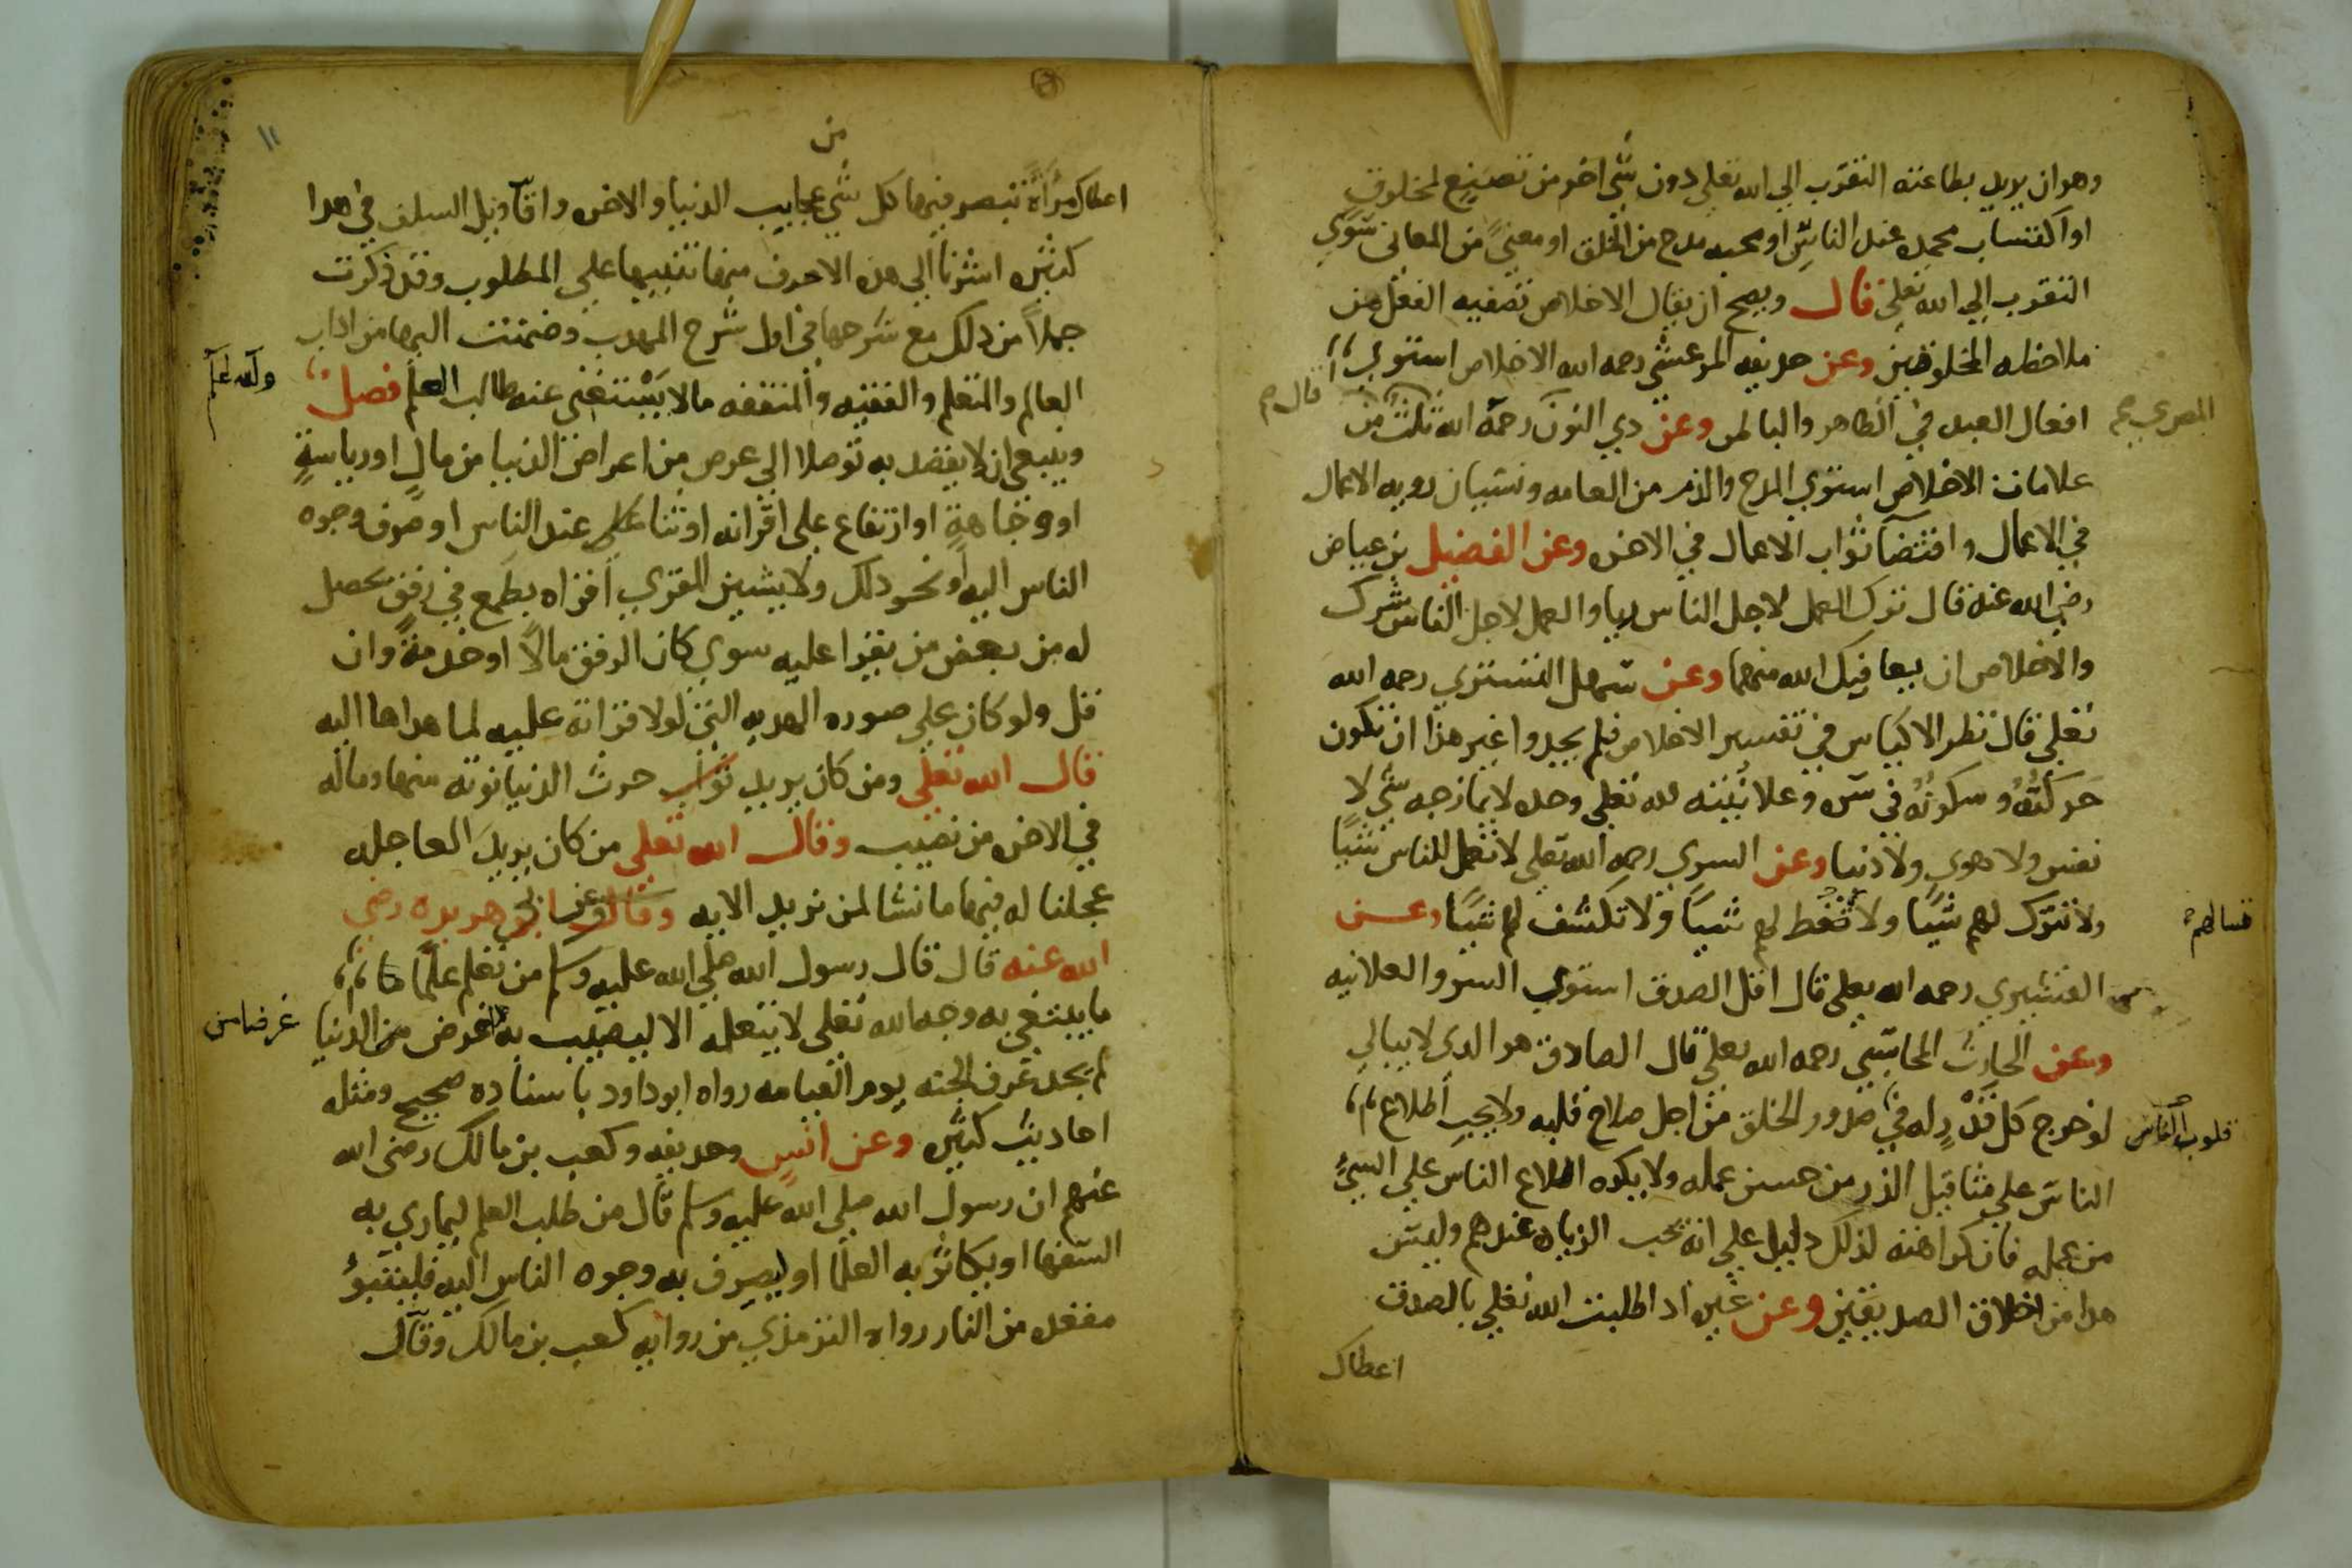 وهو ان يريد بطاعته التقرب الي الله تعلي دون شي اخر من تصنع لمخلوق
او اكتساب محمدة عند الناس او محبه مدح من الخلق او معنىً من المعانى سوي
التقرب الي الله تعلي قال ويصح ان يقال الاخلاص تصفيه الفعل من
ملاحظه المخلوقين وعن حديفه المرعشي رحمه الله الاخلاص استوي
قال
افعال العبد في الظاهر والباطن وعن دي النون رحمه الله ثلث من
المصري
علامات الاخلاص استوي المدح والذم من العامه ونسيان رويه الاعمال
في الاعمال واقتضآ ثواب الاعمال في الاخره وعن الفضيل بن عياض
رضي الله عنه قال ترك العمل لاجل الناس ريا والعمل لاجل الناس شرك
والاخلاص ان يعافيك الله منهما وعن سهل التستري رحمه الله
تعلي قال نظر الاكياس في تفسير الاخلاص فلم يجدوا غير هذا ان تكون
حركتُهُ وسكونُهُ في سره وعلانيته لله تعلي وحده لا يمازجه شي لا
نفس ولا هوي ولا دنيا وعن السري رحمه الله تعلي لا تعمل للناس شيًا
ولا تترك لهم شيًا ولا تغط لهم شيًا ولا تكشف لهم شيًا وعن
القشيري رحمه الله تعلي قال اقل الصدق استوي السر والعلانيه
وعن الحارث المحاسبي رحمه الله تعلي قال الصادق هو الدي لا يبالي
لو خرج كل قَدْرٍ له في صدور الخلق من اجل صلاح قلبه ولا يحب اطلاع
قلوب الناس
الناس علي مثاقيل الذر من حسن عمله ولا يكره اطلاع الناس علي السيّ
من عمله فان كراهته لذلك دليل علي انه يحب الزياده عندهم وليس
هدا من اخلاق الصديقين وعن غيره ادا طلبت الله تعلي بالصدق
اعطاك
من
اعطاك مرآةً تبصر فيها كل شي عجايب الدنيا والاخره واقآويل السلف في هدا
كثيره اشرنا الي هذه الاحرف منها تنبيها علي المطلوب وقد ذكرت
جملاً من ذلك مع شرحها في اول شرح المهدب وضممت اليها من اداب
العالم والمتعلم والفقيه والمتفقه ما لا يَسْتغنى عنه طالب العلم فصل
والله اعلم
وينبغي ان لا يقصد به توصلا الي عرض من اعراض الدنيا من مالٍ او رياسةٍ
او وجاهةٍ او ارتفاع علي اقرانه او ثنا عند الناس او صرف وجوه
الناس اليه او نحو دلك ولا يشين المقري اقراه بطمع في رفقٍ يحصل
له من بعض من يقرا عليه سوي كان الرفق مالاً او خدمةً وان
قل ولو كان علي صوره الهديه التي لولا قراته عليه لما هداها اليه
قال الله تعلي ومن كان يريد ثواب حرث الدنيا نوته منها وماله
في الاخره من نصيب وقال الله تعلي من كان يريد العاجله
عجلنا له فيها ما نشا لمن نريد الايه وقال وعن ابي هريره رضي
الله عنه قال قال رسول الله صلي الله عليه وسلم من تعلم علمًا مما
ما يبتغي به وجه الله تعلي لا يتعلمه الا ليصيب به غرض من الدنيا
غرضا من
لم يجد عَرف الجنه يوم القيامه رواه ابو داود باسناده صحيح ومثله
احاديث كثيره وعن انسٍ وحديفه وكعب بن مالك رضى الله
عنهم ان رسول الله صلي الله عليه وسلم قال من طلب العلم ليماري به
السفها او يكاثر به العلما او ليصرف به وجوه الناس اليه فليتبوُّ
مقعده من النار رواه الترمذي من روايه كعب بن مالك وقال